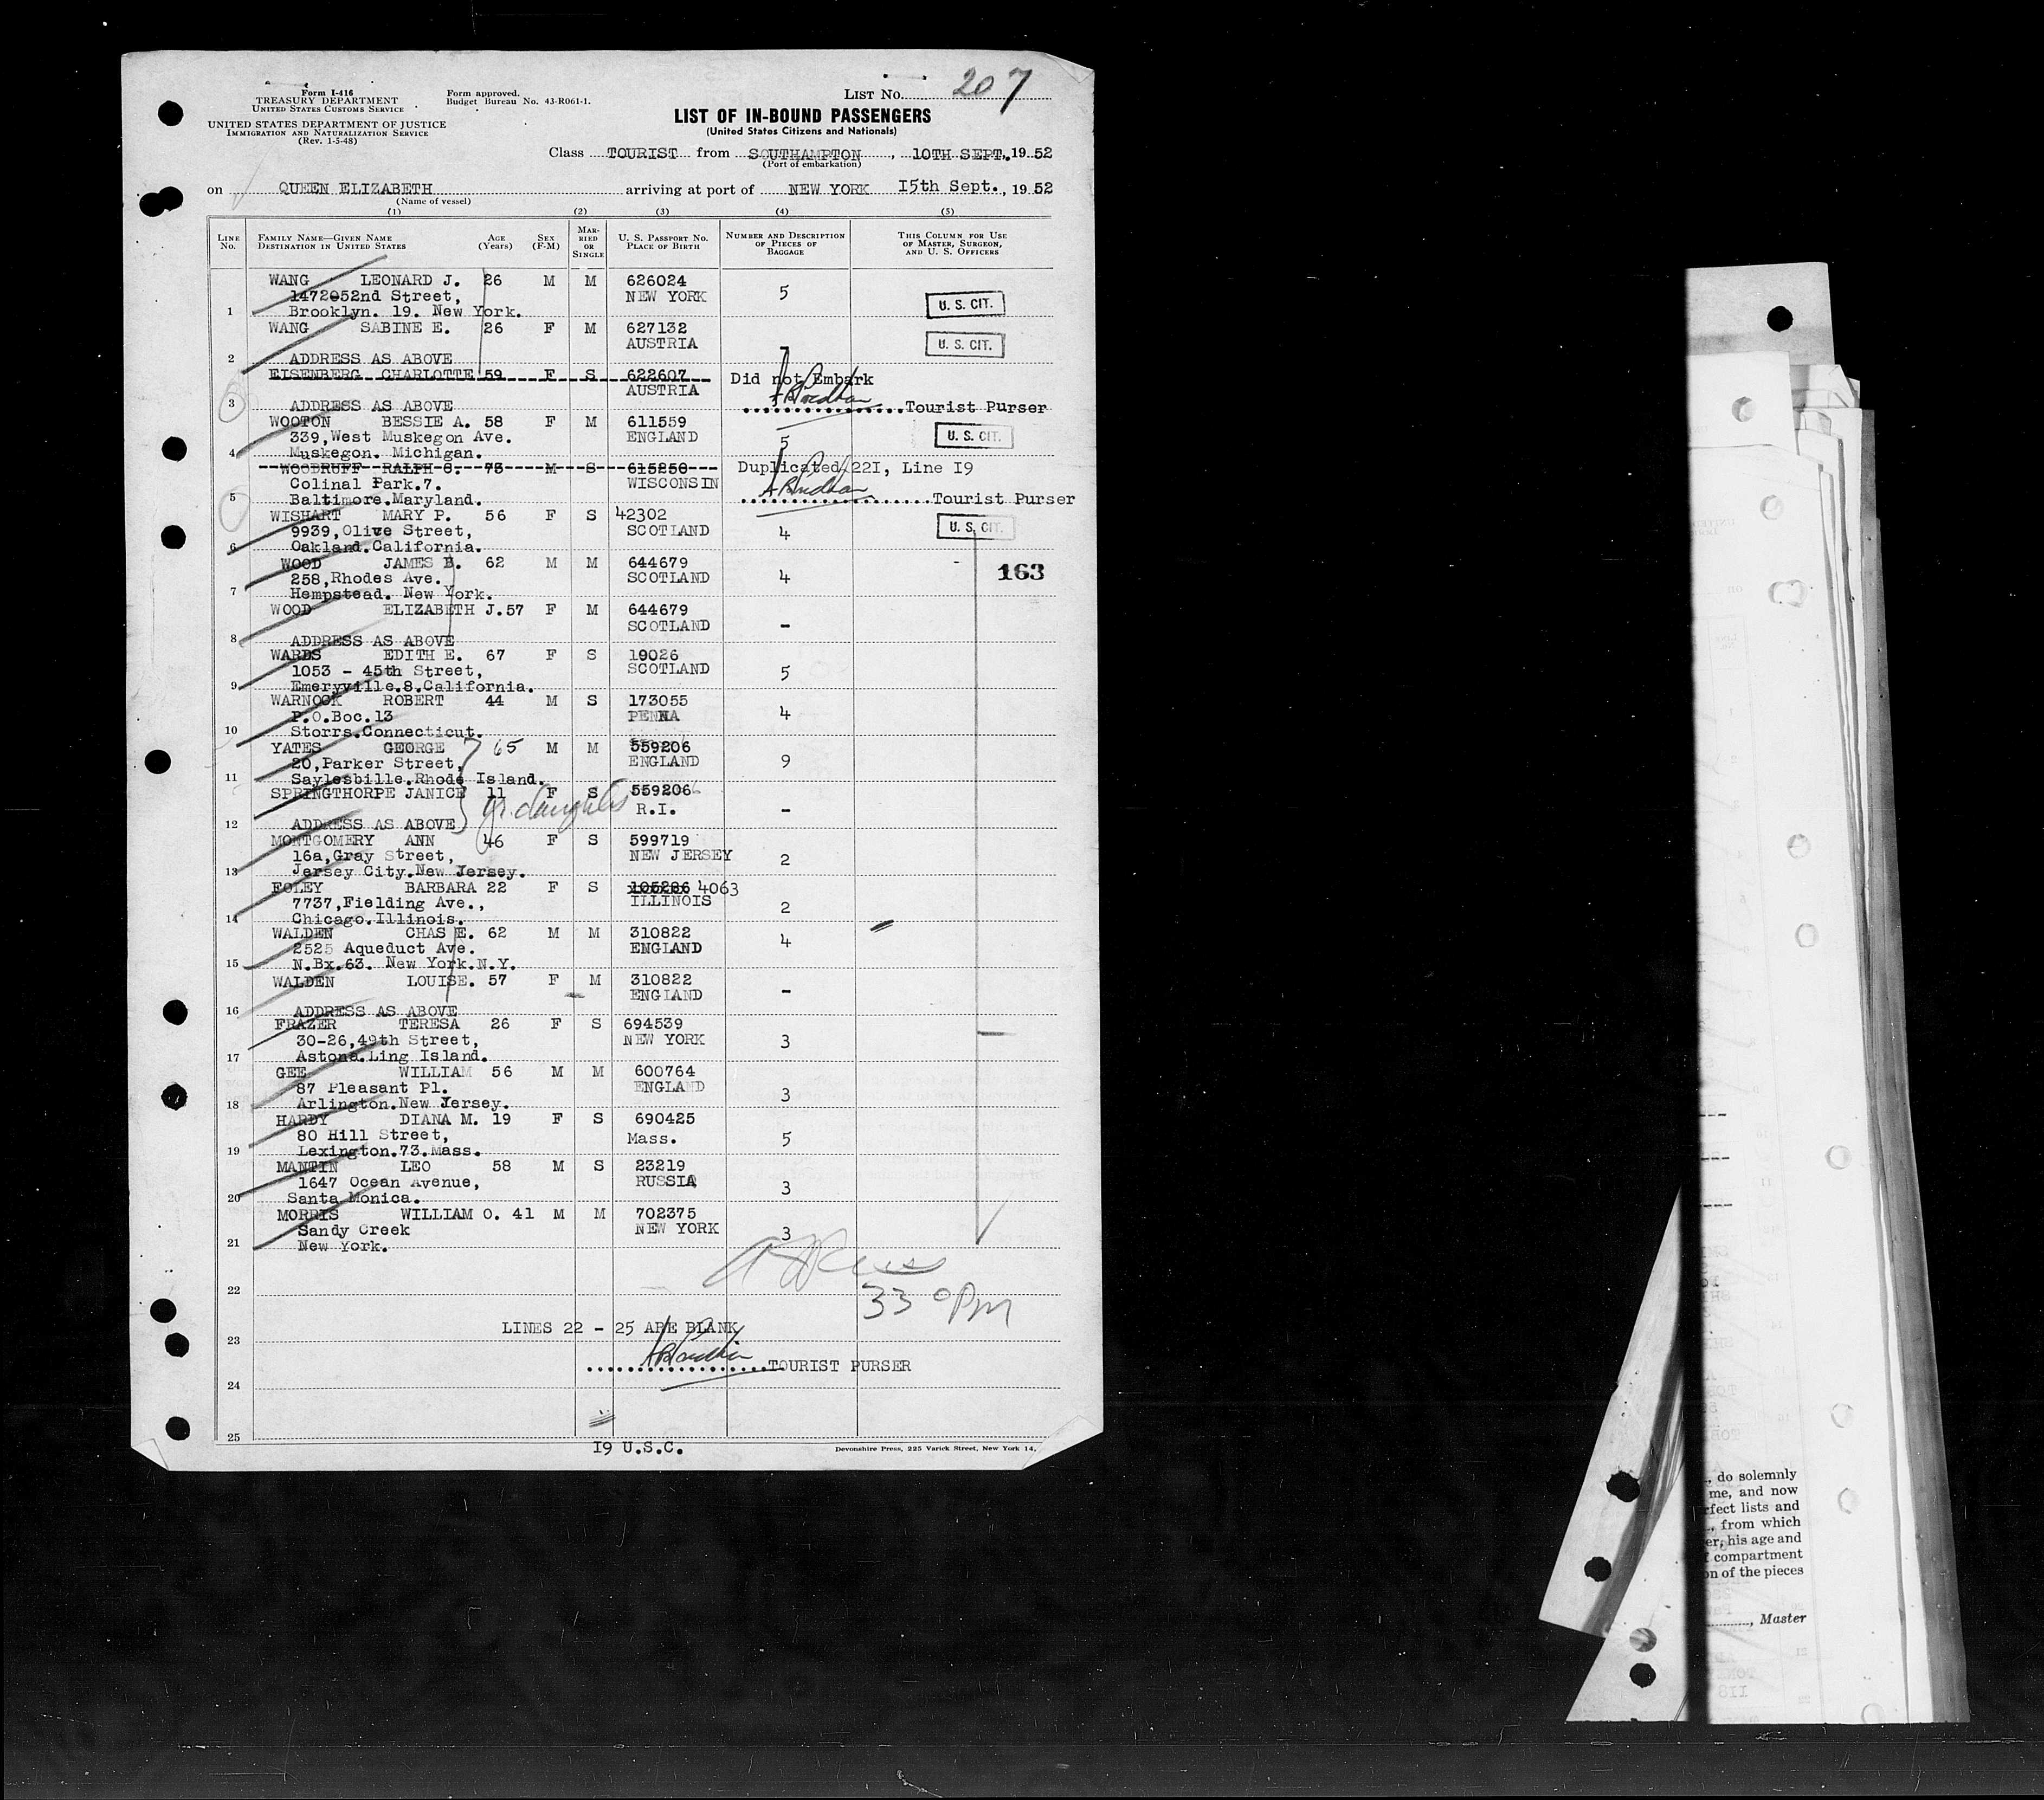 Form I-416
TREASURY DEPARTMENT
UNITED STATES CUSTOMS SERVICE
UNITED STATES DEPARTMENT OF JUSTICE
IMMIGRATION AND NATURALIZATION SERVICE
(Rev. 1-5-48)
Form approved.
Budget Bureau No. 43-R061-1.
LIST No. 207
LIST OF IN-BOUND PASSENGERS
(United States Citizens and Nationals)
Class TOURIST from SOUTHAMPTON, 10TH SEPT., 1952
(Port of embarkation)
on QUEEN ELIZABETH arriving at port of NEW YORK 15th Sept., 1952
(Name of vessel)
(1) (2) (3) (4) (5)
LINE No. FAMILY NAME—GIVEN NAME DESTINATION IN UNITED STATES AGE (Years) SEX (F-M) MARRIED OR SINGLE U. S. PASSPORT No. PLACE OF BIRTH NUMBER AND DESCRIPTION OF PIECES OF BAGGAGE THIS COLUMN FOR USE OF MASTER, SURGEON, AND U. S. OFFICERS
WANG LEONARD J. 26 M M 626024
1472-52nd Street, NEW YORK 5
1 Brooklyn. 19. New York. U. S. CIT.
WANG SABINE E. 26 F M 627132
AUSTRIA U. S. CIT.
2 ADDRESS AS ABOVE
EISENBERG CHARLOTTE 59 F S 622607 Did not Embark
AUSTRIA
3 ADDRESS AS ABOVE Tourist Purser
WOOTON BESSIE A. 58 F M 611559
339,West Muskegon Ave. ENGLAND 5 U. S. CIT.
4 Muskegon. Michigan.
WOODRUFF RALPH C. 73 M S 615250 Duplicated 22I, Line I9
Colinal Park.7. WISCONSIN
5 Baltimore.Maryland. Tourist Purser
WISHART MARY P. 56 F S 42302
9939,Olive Street, SCOTLAND 4 U. S. CIT.
6 Oakland.California.
WOOD JAMES B. 62 M M 644679
258,Rhodes Ave. SCOTLAND 4 163
7 Hempstead. New York.
WOOD ELIZABETH J.57 F M 644679
SCOTLAND -
8 ADDRESS AS ABOVE
WARDS EDITH E. 67 F S 19026
1053 - 45th Street, SCOTLAND 5
9 Emeryville.8.California.
WARNOCK ROBERT 44 M S 173055
P.O.Boc.13 PENNA 4
10 Storrs.Connecticut.
YATES GEORGE 65 M M 559206
20,Parker Street, ENGLAND 9
11 Saylesbille.Rhode Island.
SPRINGTHORPE JANICE 11 F S 559206
gr. daughter R.I. -
12 ADDRESS AS ABOVE
MONTGOMERY ANN 46 F S 599719
16a,Gray Street, NEW JERSEY 2
13 Jersey City.New Jersey.
FOLEY BARBARA 22 F S 105286 4063
7737,Fielding Ave., ILLINOIS 2
14 Chicago.Illinois.
WALDEN CHAS E. 62 M M 310822
2525 Aqueduct Ave. ENGLAND 4
15 N.Bx.63. New York.N.Y.
WALDEN LOUISE. 57 F M 310822
ENGLAND -
16 ADDRESS AS ABOVE
FRAZER TERESA 26 F S 694539
30-26,49th Street, NEW YORK 3
17 Astona.Ling Island.
GEE WILLIAM 56 M M 600764
87 Pleasant Pl. ENGLAND 3
18 Arlington.New Jersey.
HARDY DIANA M. 19 F S 690425
80 Hill Street, Mass. 5
19 Lexington.73.Mass.
MANTIN LEO 58 M S 23219
1647 Ocean Avenue, RUSSIA 3
20 Santa Monica.
MORRIS WILLIAM O. 41 M M 702375
Sandy Creek NEW YORK 3
21 New York.
22
330 PM
LINES 22 - 25 ARE BLANK
23
TOURIST PURSER
24
25
I9 U.S.C.
Devonshire Press, 225 Varick Street, New York 14.
, do solemnly
me, and now
rfect lists and
, from which
er, his age and
compartment
on of the pieces
, Master